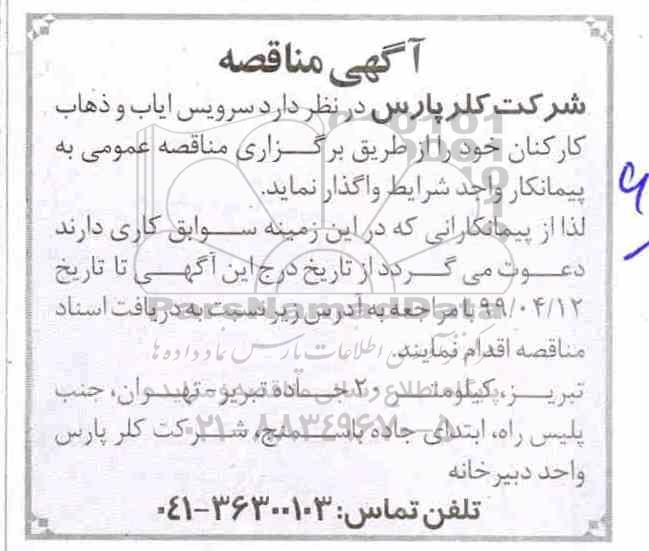 آگهی مناقصه
شرکت کلر پارس در نظر دارد سرویس ایاب و ذهاب
کارکنان خود را از طریق برگزاری مناقصه عمومی به
پیمانکار واجد شرایط واگذار نماید.
لذا از پیمانکارانی که در این زمینه سوابق کاری دارند
دعوت می گردد از تاریخ درج این آگهی تا تاریخ
۹۹/۰۴/۱۲ با مراجعه به آدرس زیر نسبت به دریافت اسناد
مناقصه اقدام نمایند.
تبریز، کیلومتر ۲۰ جاده تبریز - تهران، جنب
پلیس راه، ابتدای جاده باسمنج، شرکت کلر پارس
واحد دبیرخانه
تلفن تماس: ۳۶۳۰۰۱۰۳-۰۴۱
ParsNamadData
مرکز فرآوری اطلاعات پارس نماد داده ها
۰۲۱-۸۸۳۴۹۶۷۰